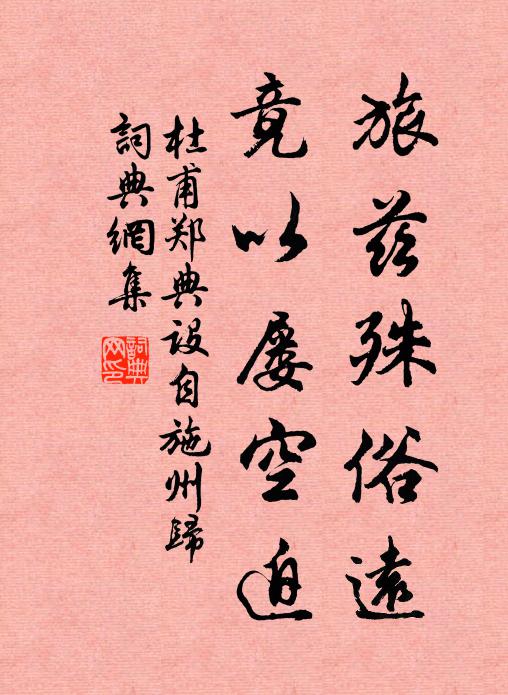 旅茲殊俗遠
竟以屢空迫
杜甫郑典设自施州歸
詞典網集
詞典網印